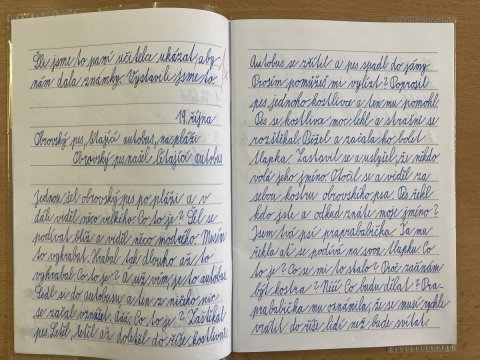 Šli jsme to paní učitela ukázat aby
nám dala známky. Vystavili jsme to
19. října
Obrovský pes, lítající autobus, na pláži
Obrovský pes našel lítající autobus
Jednou šel obrovský pes po pláži a v
dáli viděl něco velkého. Co to je? Šel se
podívat blíž a viděl něco modrého. Musím
to vyhrabat. Hrabal tak dlouho až to
vyhrabal. Co to je? A už vím je to autobus.
Sedl si do autobusu a ten z ničeho nic
se začal vznášet. Co to je? Zaštěkal
pes. Letěl, letěl až doletěl do říše kostlivců.
Autobus se zřítil a pes spadl do jámy.
Prosím pomůžeš mi vylízt? Poprosil
pes jednoho kostlivce a ten mu pomohl.
Pes se kostlivce moc lekl a strašně se
rozštěkal. Běžel a začala ho bolet
tlapka. Zastavil se a uslyšel, že někdo
volá jeho jméno. Otočil se a viděl za
sebou kostru obrovského psa. Pes řekl
kdo jste a odkud znáte moje jméno?
Jsem tvá psí praprababička. Ta mu
řekla ať se podívá na svou tlapku. Co
to je? Co se mi to stalo? Proč začínám
být kostra? Co budu dělat? Pra-
prababička mu oznámila, že se musí rychle
vrátit do říše lidí než bude svítat.